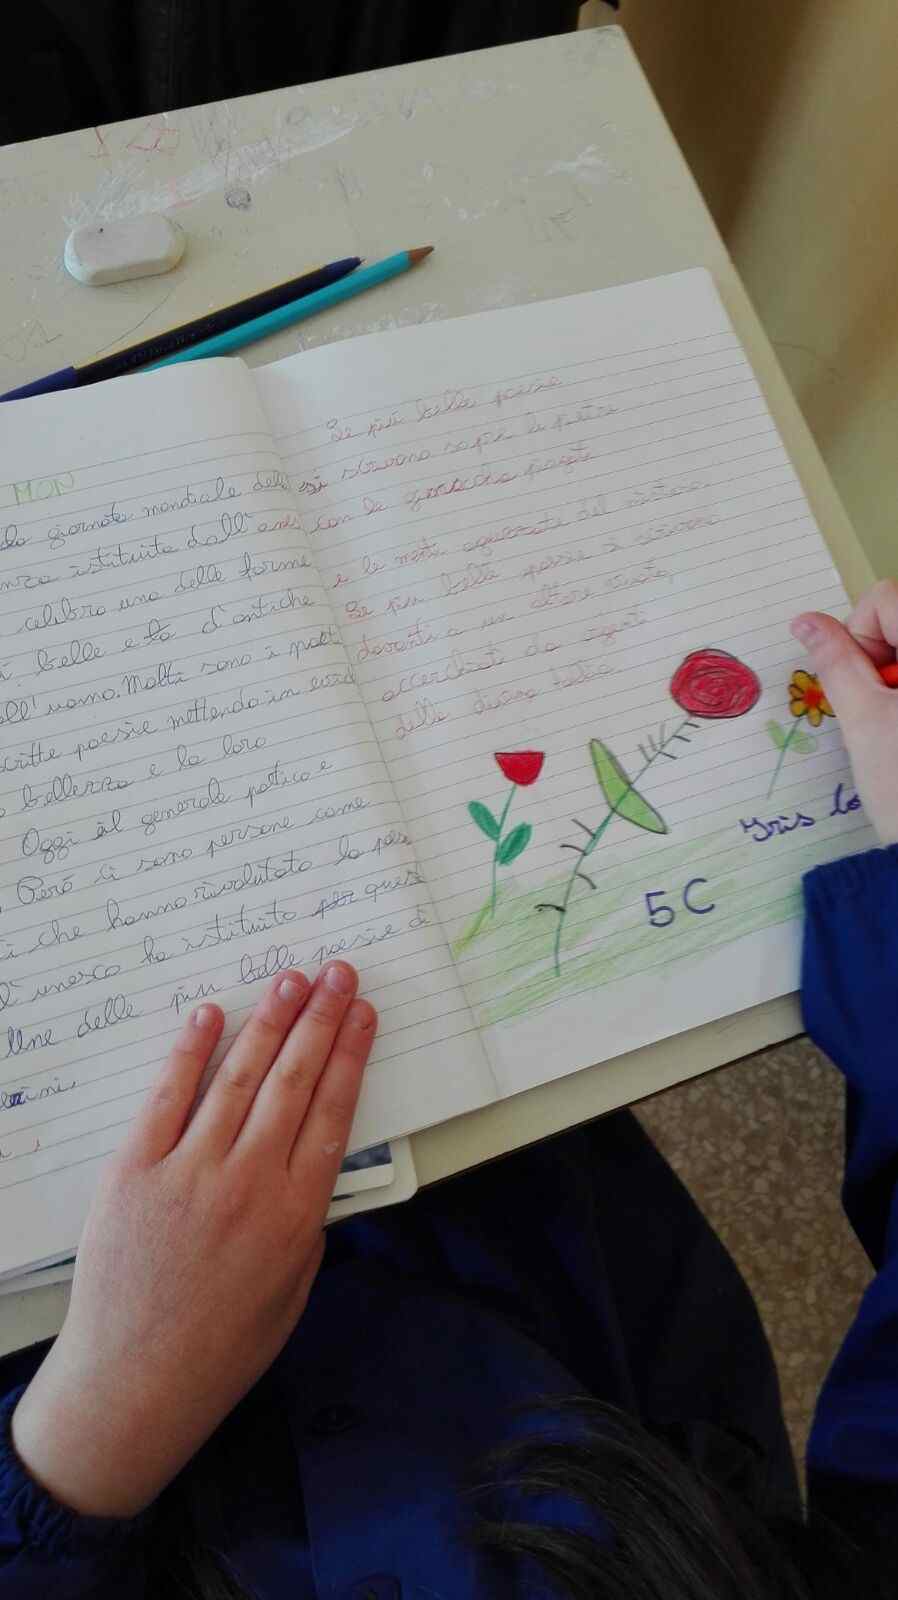 MON
giornata mondiale della
istituita dall'unes
celibra una delle forme
belle e fa d'antiche
ell'uomo. Molti sono i poeti
critte poesie mettendo in evid
bellezza e la loro
Oggi il generale poetico e
Però ci sono persone come
che hanno rivolutato la poes
l'unesco ha istituito per quest
Une delle piu belle poesie di
ini.
Le più belle poesie
si scrivono sopra le pietre
con le ginocchia piagate
e le menti aguzzate dal mistero
Le più belle poesie si scrivono
davanti a un altare vuoto,
accerchiati da agenti
della divina
Iris Lo
5C